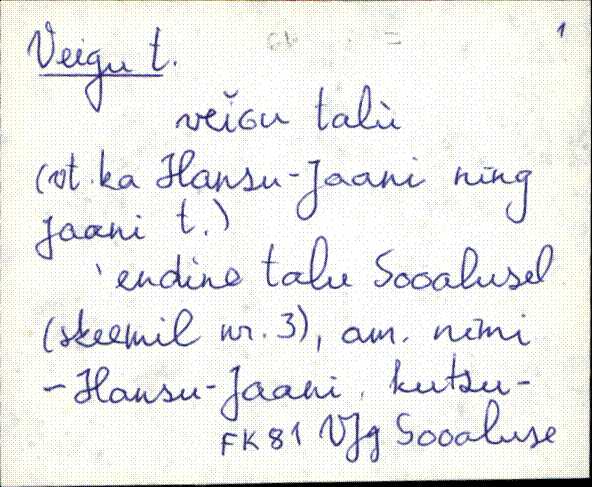 1
Veigu t.
veiɢu talù
(vt. ka Hansu-Jaani ning
Jaani t.)
'endine talu Sooalusel
(skeemil nr. 3), am. nimi
- Hansu-Jaani, kutsu-
FK 81 VJg Sooaluse